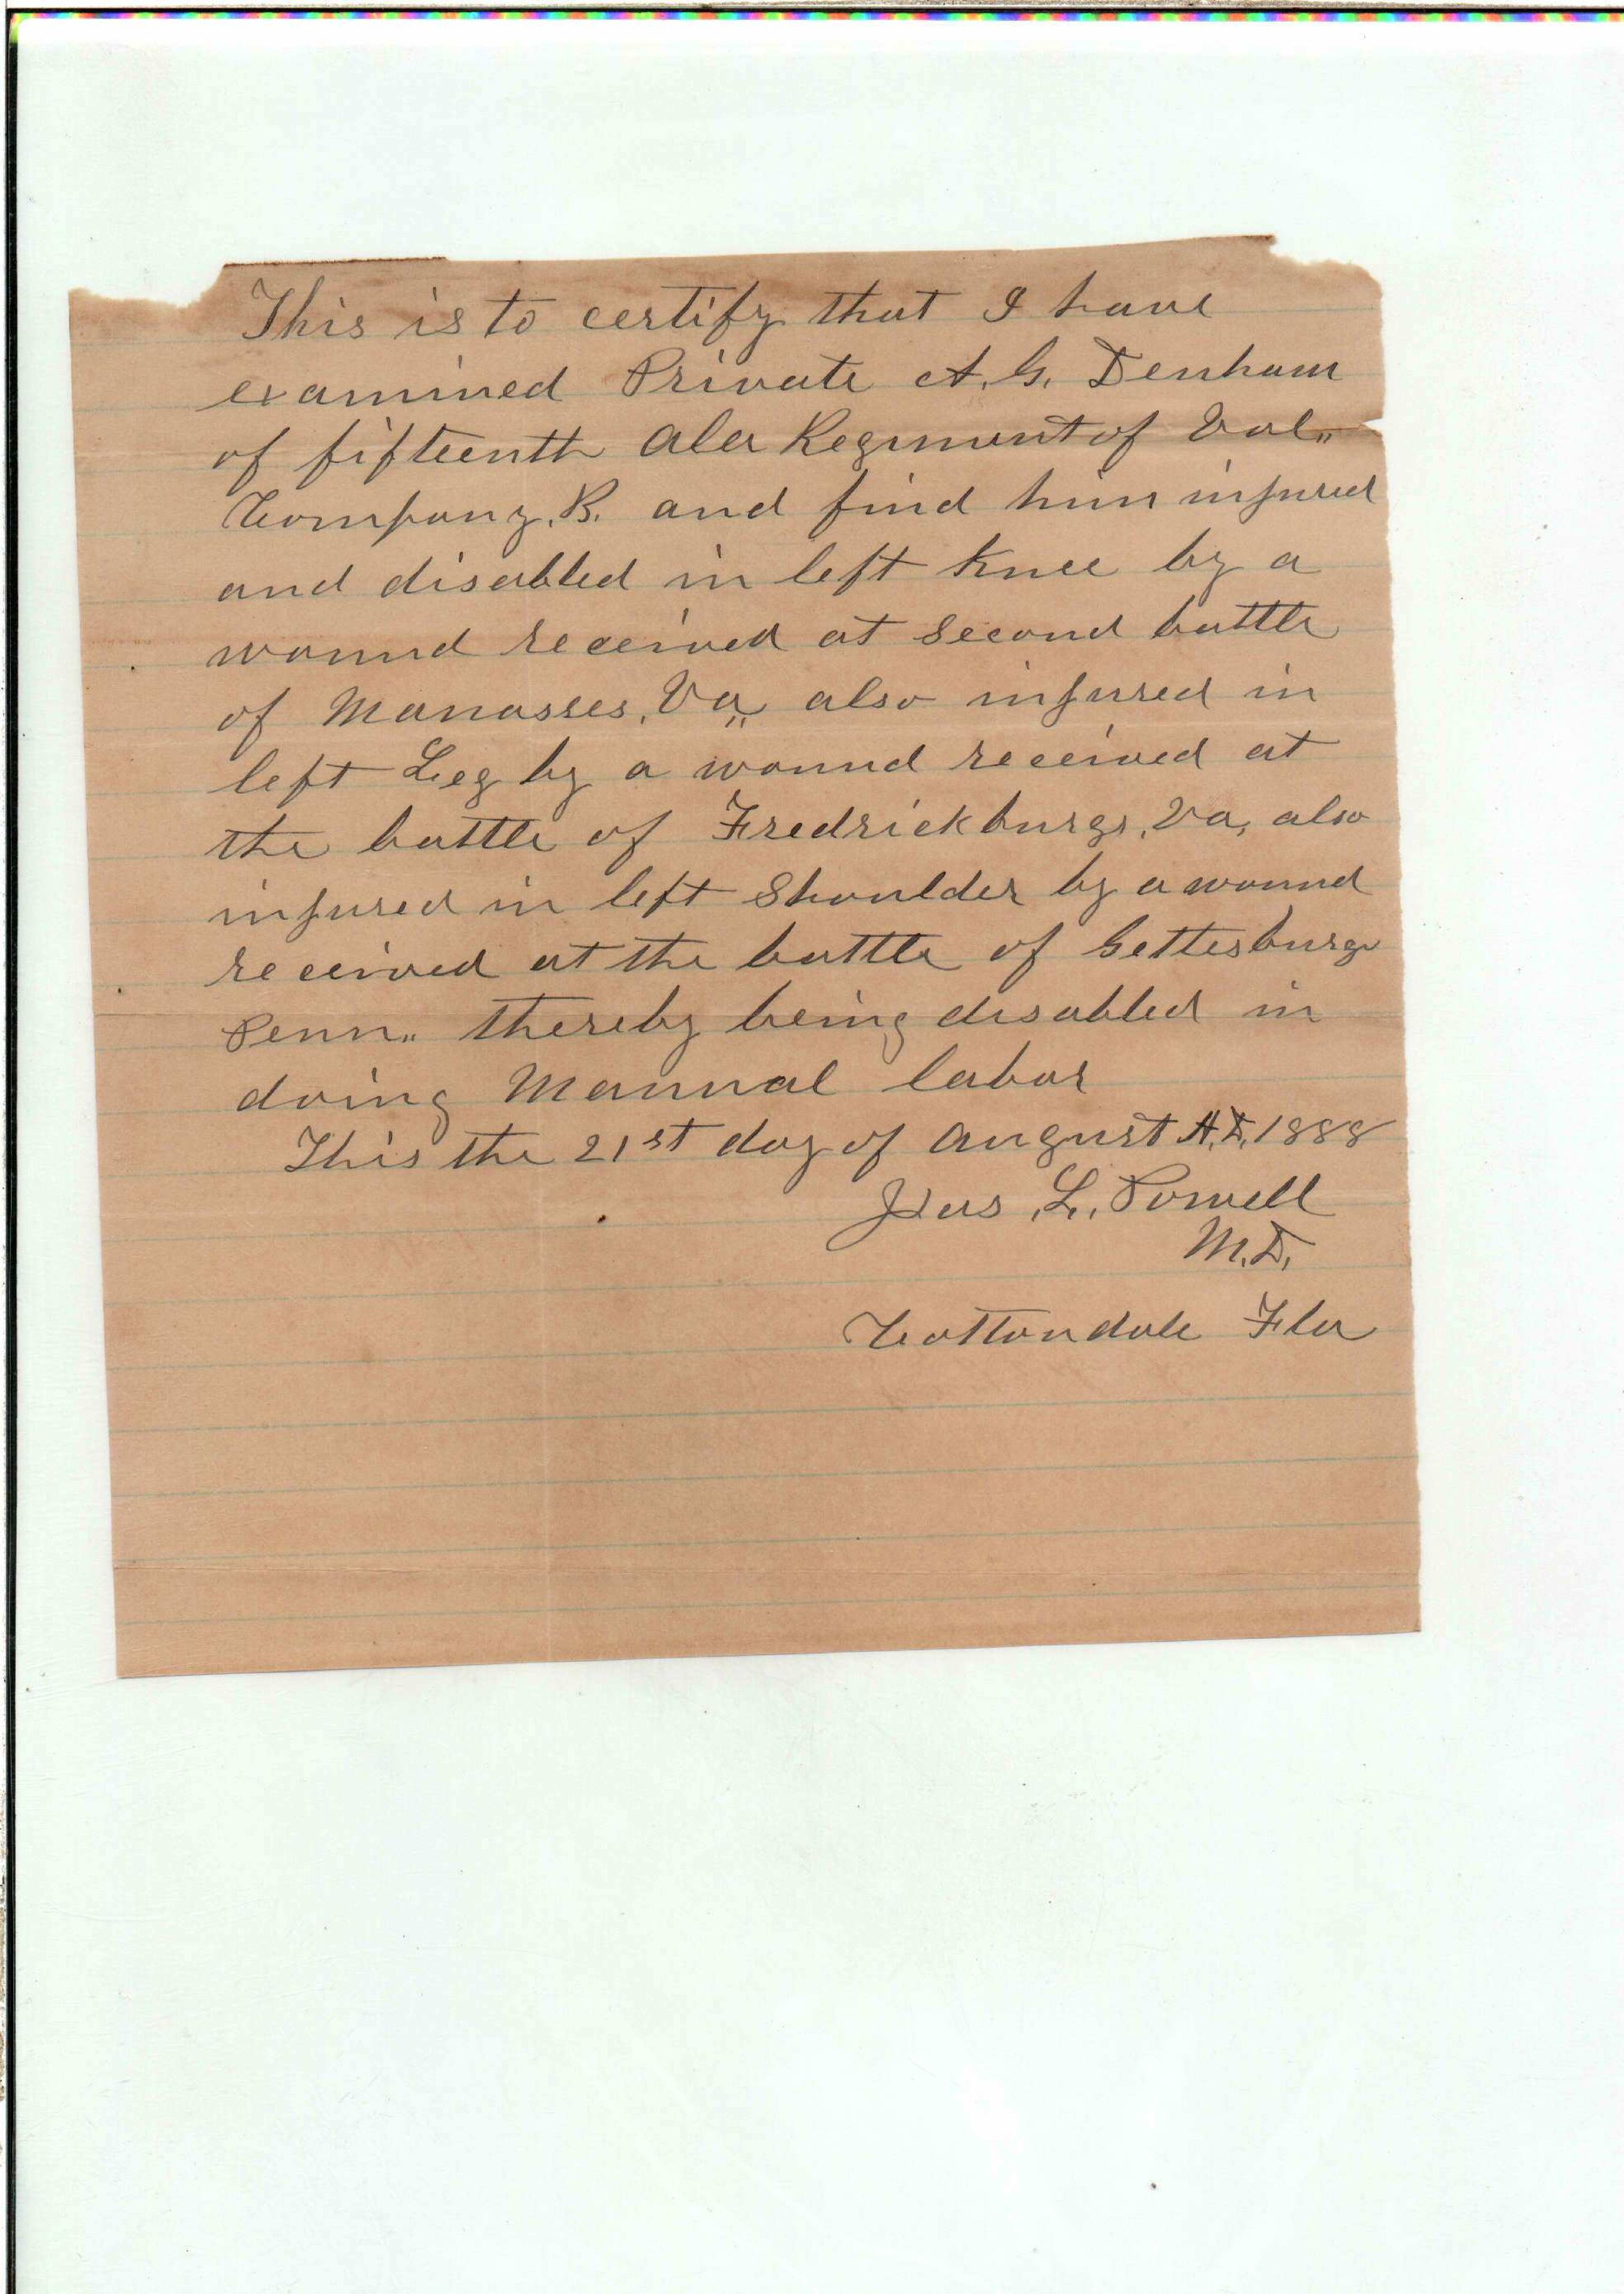 This is to certify that I have
examined Private A. G. Denham
of fifteenth Ala Regiment of Vol.,
Company, B. and find him injured
and disabled in left knee by a
wound received at second battle
of Manasses, Va,, also injured in
left Leg by a wound received at
the battle of Fredrickburgs, Va, also
injured in left Shoulder by a wound
received at the battle of Gettesburg
Penn.. thereby being disabled in
doing Manual labor
This the 21st day of August A.D. 1888
Jas, L, Powell
M.D.
Cottondale Fla